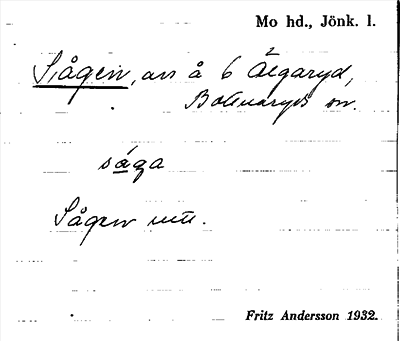 Mo hd., Jönk. l.
Sågen, avs å 6 Älgaryd,
Bottnaryds sn.
såga
Sågen
Fritz Andersson 1932.